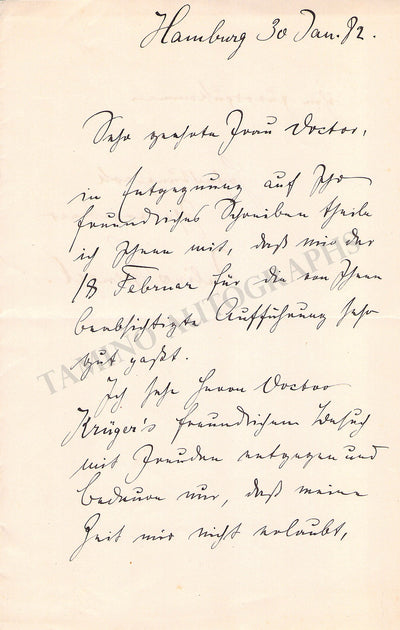 Hamburg 30 Jan. 82.
Sehr geehrte Frau Doctor,
in Entgegnung auf Ihr
freundliches Schreiben theile
ich Ihnen mit, daß mir der
18 Februar für die von Ihnen
beabsichtigte Aufführung sehr
gut paßt.
Ich sehe Herrn Doctor
Krüger's freundlichem Besuch
mit Freuden entgegen und
bedaure nur, daß meine
Zeit mir nicht erlaubt,
TAMINO AUTOGRAPHS